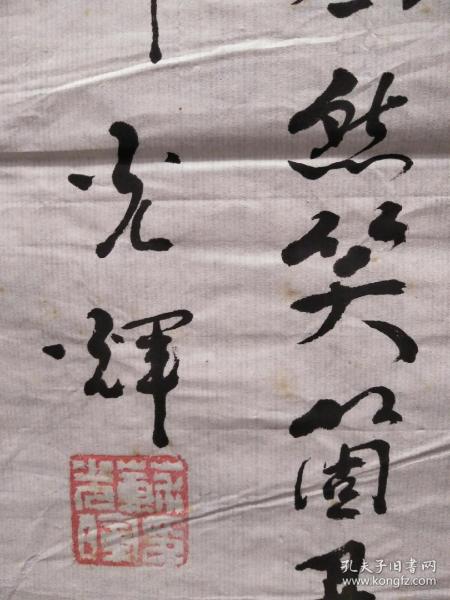 然笑箇
光輝
孔夫子旧书网
www.kongfz.com